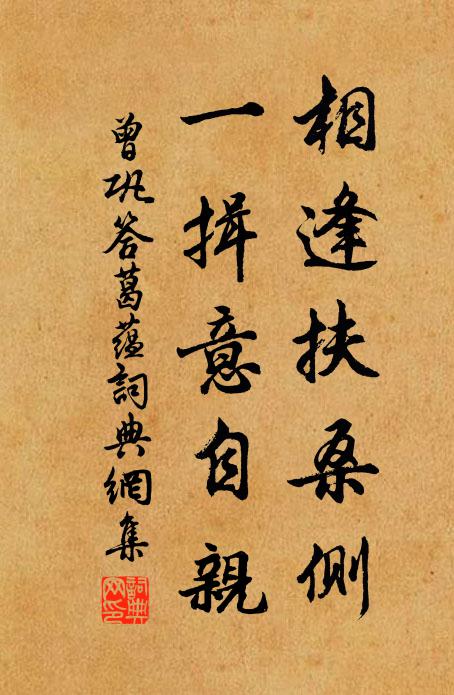 相逢扶桑側
一揖意自親
曾巩答葛蕴詞典網集
詞典
网印